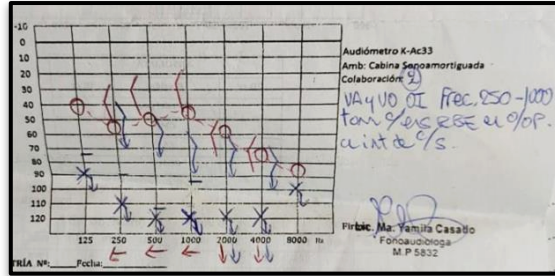 -10
0
10
20
30
40
50
60
70
80
90
100
110
120
125 250 500 1000 2000 4000 8000 Hz
TRÍA Nº:____Fecha:____
Audiómetro K-Ac33
Amb: Cabina Sonoamortiguada
Colaboración: 2
VA y VO OI Frec. 250-1000
RBE
Ma. Yamila Casado
Fonoaudiologa
M.P 5832